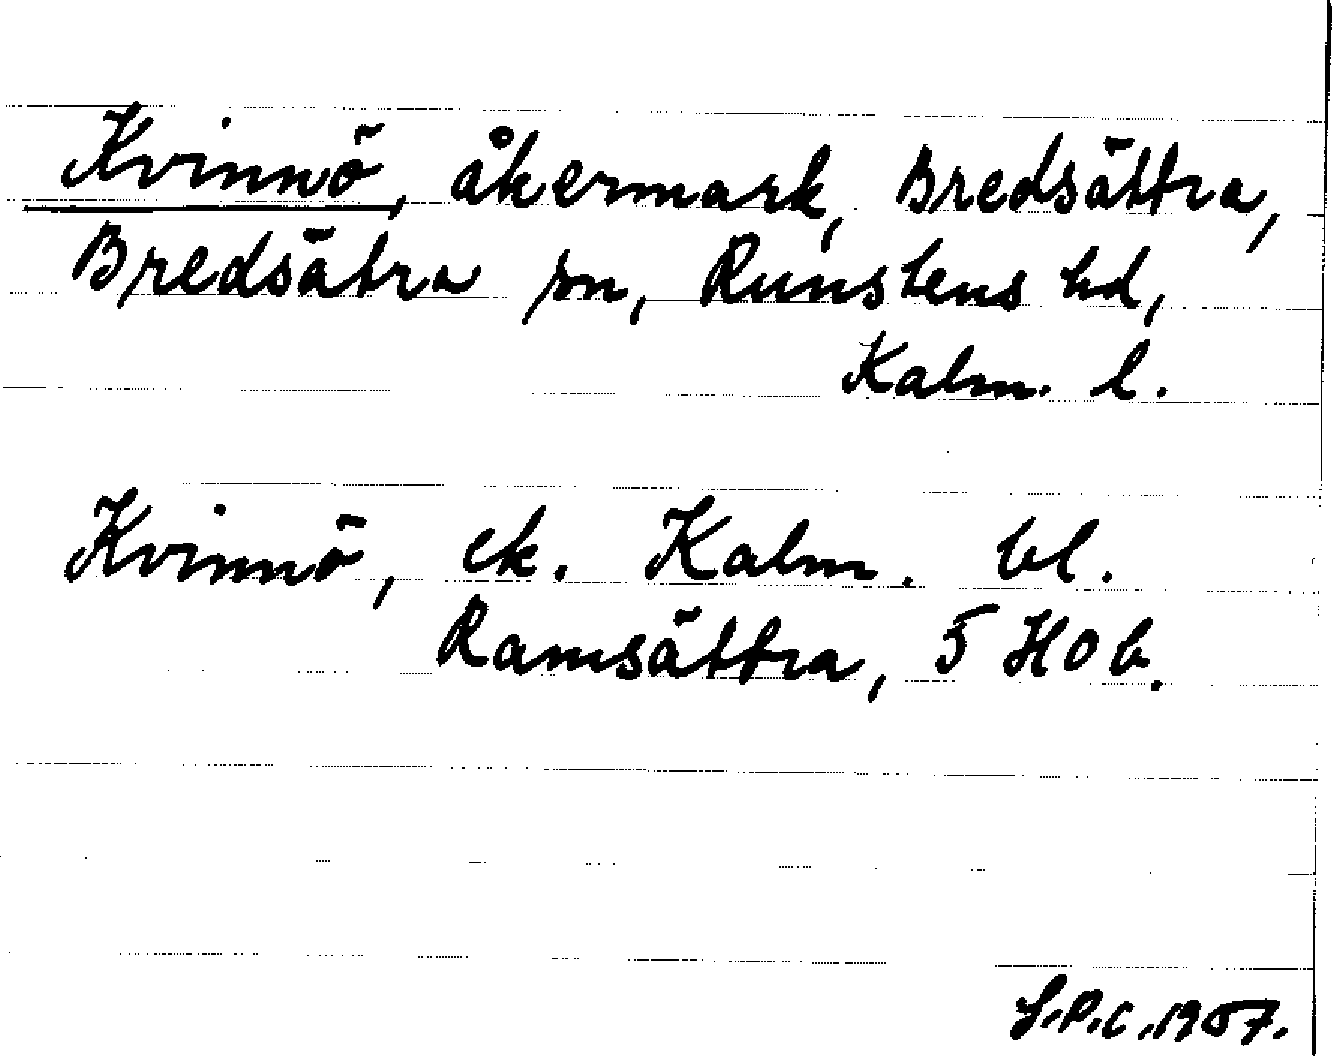 Kvinnö, åkermark, Bredsättra,
Bredsätra sn, Runstens hd,
Kalm. l.
Kvinnö, ek. Kalm. bl.
Ramsättra, 5 HOb.
S.P.C. 1957.